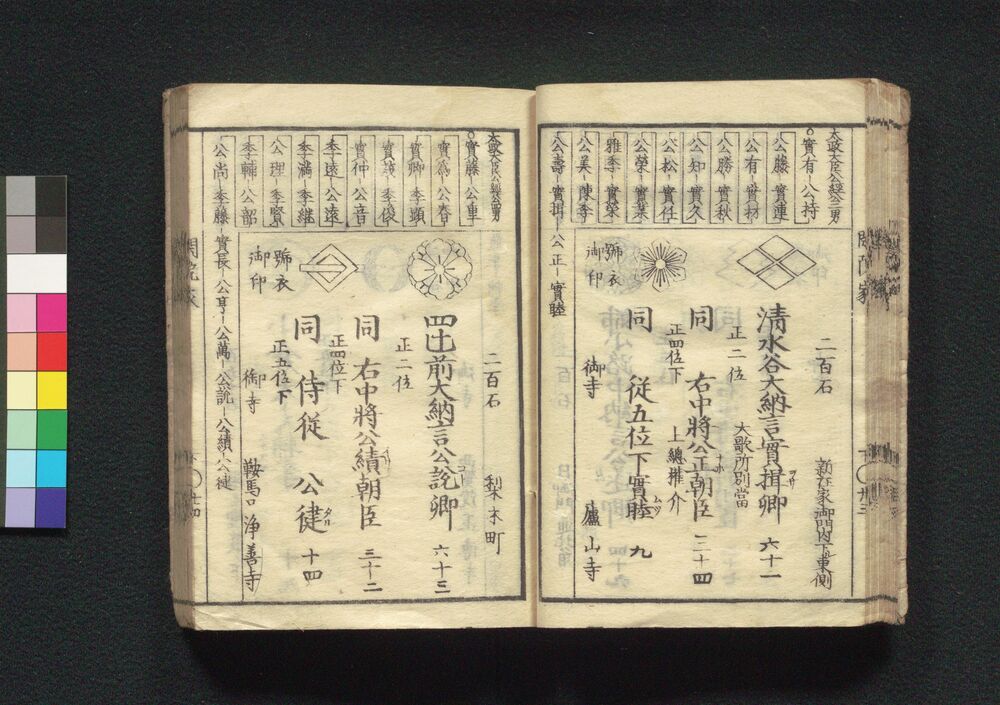 太政大臣公經公二男
○實有－公持
公藤－實連
公有－實材
公勝－實秋
公知－實久
公松－實任
公榮－實業
雅季－實榮
公美－陳季
公壽－實揖－公正－實睦
二百石
新在家御門内下ル東側
清水谷大納言實揖卿 六十一
正二位
大歌所別當
同 右中將公正朝臣 三十四
正四位下
上總推介
同 從五位下實睦 九
號衣
御印
御寺
廬山寺
閑院家
下 ○廿三
太政大臣公經公四男
○實藤－公重
實爲－公春
實卿－季顯
實茂－季俊
實仲－公音
季遠－公遠
季滿－季継
公理－季賢
季輔－公韶
公尚－季藤－實長－公亨－公萬－公說－公績－公健
二百石
梨木町
四辻前大納言公說卿 六十三
正二位
同 右中將公績朝臣 三十二
正四位下
同 侍從 公健 十四
正五位下
號衣
御印
御寺
鞍馬口 浄善寺
閑院家